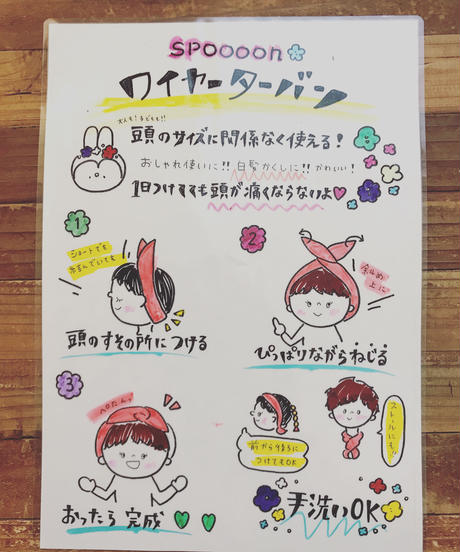 SPOOOOn
ワイヤーターバン
大人も!子どもも!!
頭のサイズに関係なく使える!
おしゃれ使いに!!白髪かくしに!!かわいい!
1日つけてても頭が痛くならないよ
1
ショートでも
お団子していても
頭のすその所につける
2
ななめ
上に
ひっぱりながらねじる
3
ペロたんっ
おったら完成
前から後ろに
つけてもOK
ストールにも!!
手洗いOK